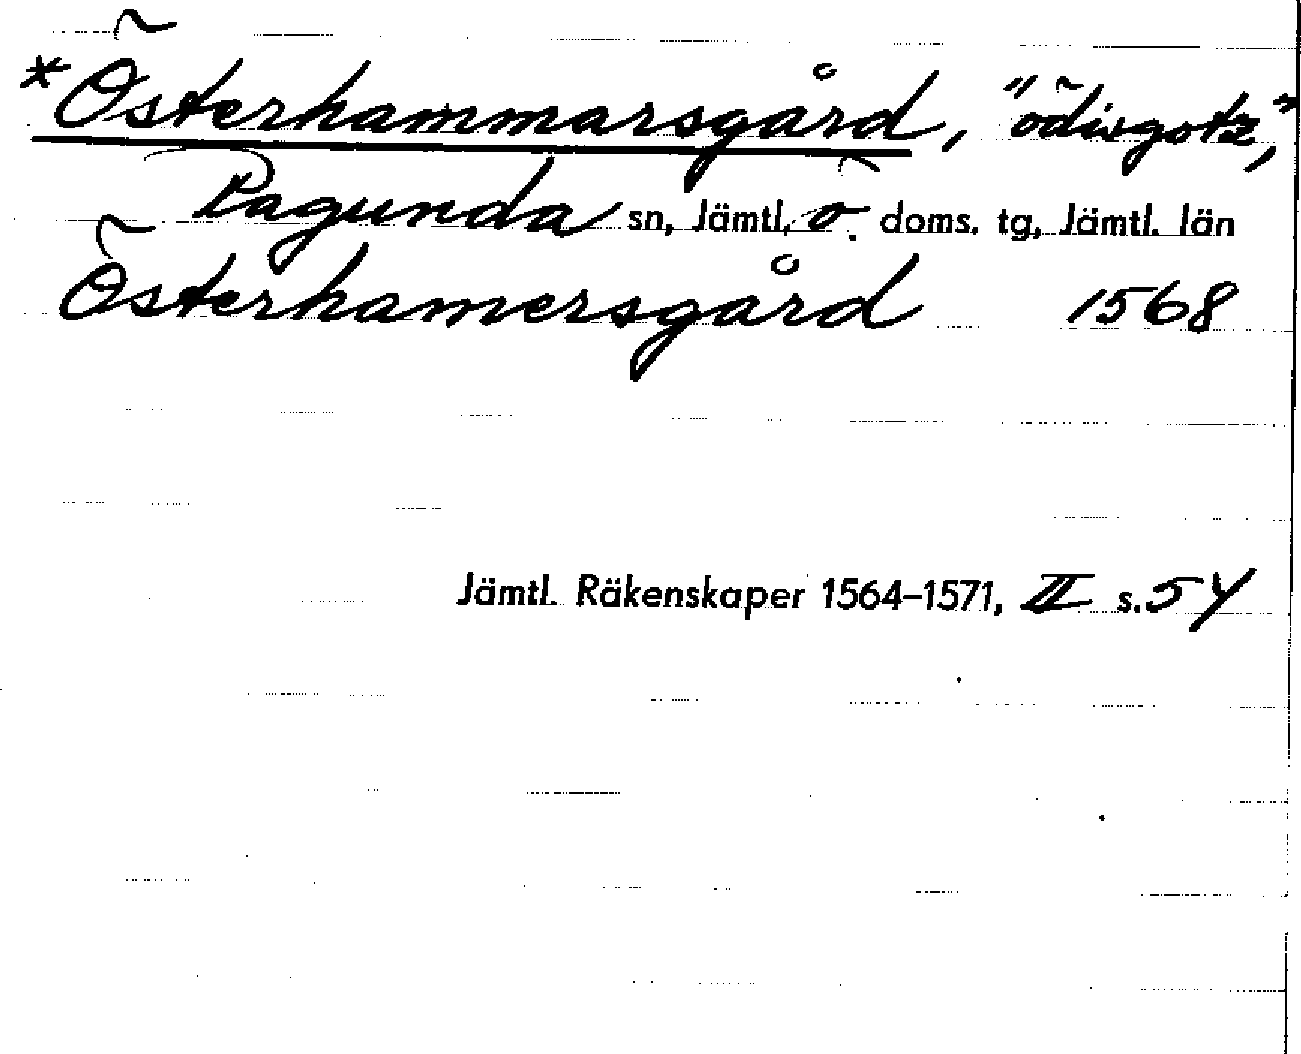 *Österhammarsgård, "ödisgotz",
Ragunda sn, Jämtl. ö. doms. tg, Jämtl. län
Österhamersgård 1568
Jämtl. Räkenskaper 1564–1571, II s. 54